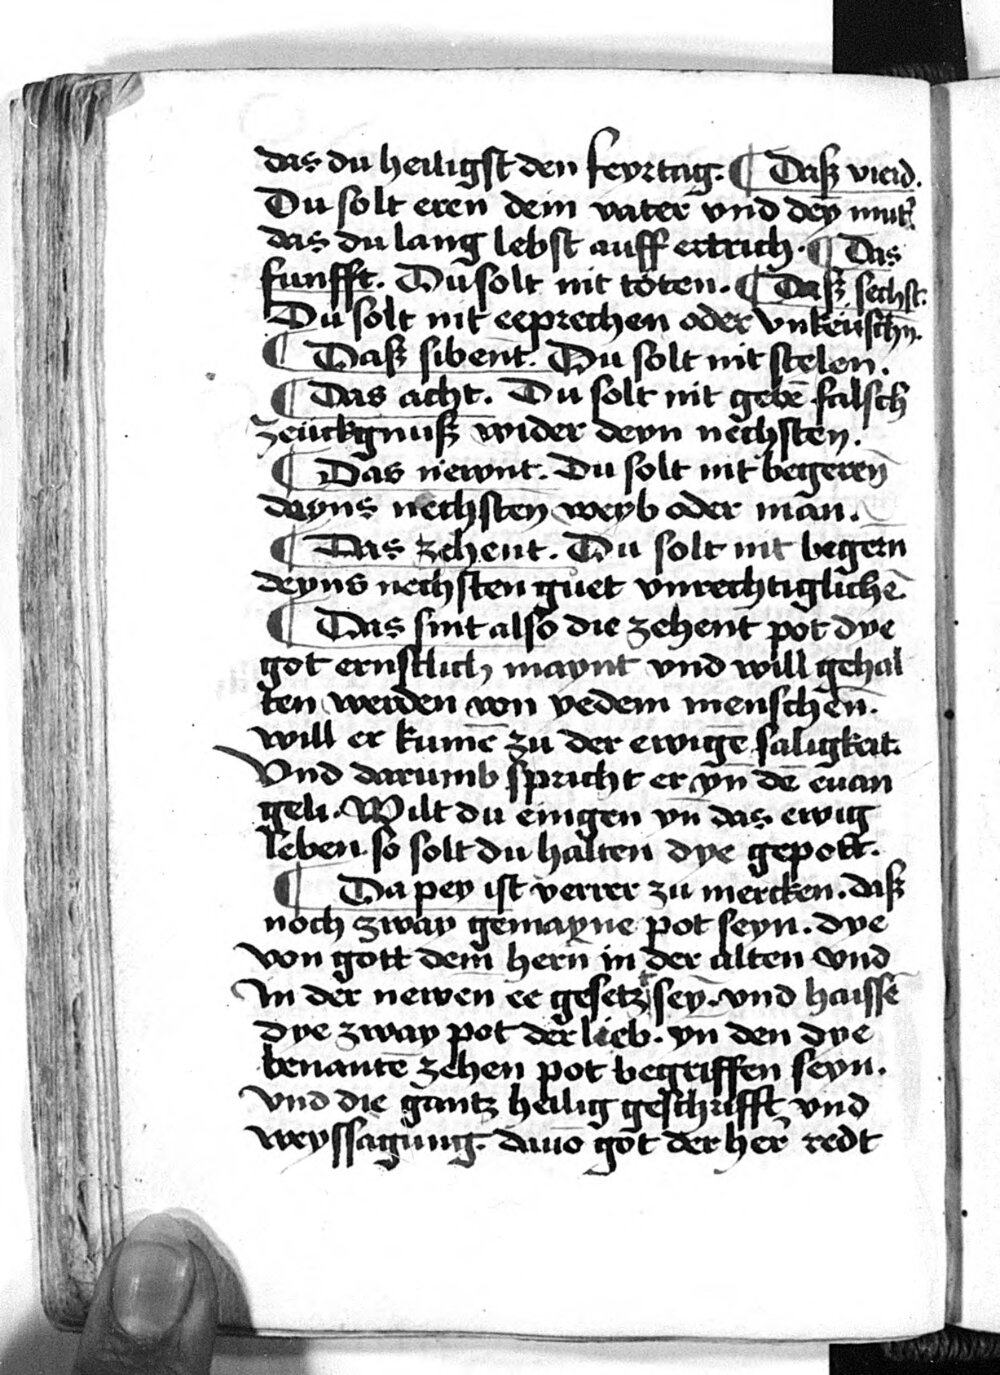 das du heiligst den feyrtag. ¶ Daß vierd.
Du solt eren dein vater vnd dey̅ mut̉.
das du lang lebst auff ertrich. ¶ Das
funfft. Du solt nit töten. ¶ Daß sechst.
Du solt nit eeprechen oder vnkeüschn̅.
¶ Daß sibent. Du solt nit stelen.
¶ Das acht. Du solt nit gebe̅ falsch
zeückgnuß wider deyn nechsten.
¶ Das niewnt. Du solt nit begeren
deyns nechsten weyb oder man.
¶ Das zehent. Du solt nit begern
deyns nechsten guet vnrechtigliche̅
¶ Das sint also die zehent pot dye
got ernstlich maynt vnd will gehal
ten werden von yedem menschen.
will er kume̅ zu der ewige̅ säligkeit.
Vnd darumb spricht er yn̅ de̅ euan
geli. Wilt du eingen yn̅ das ewig
leben so solt du halten dye gepott.
¶ Da pey ist verrer zu mercken. daß
noch zway gemayne pot seyn. dye
von gott dem hern in der alten vnd
In der newen ee gesetzt sey̅. vnd haisse̅
dye zway pot der lieb. yn̅ den dye
benante̅ zehen pot begriffen seyn.
Vnd die gantz heilig geschrifft vnd
weyssagung. dauo̅ got der her̉ redt